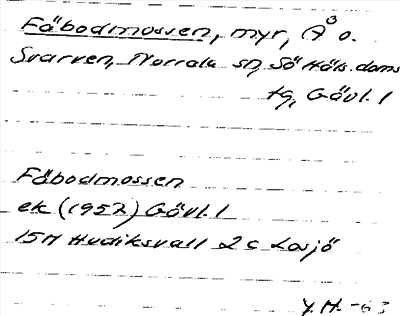 Fäbodmossen, myr, Å o.
Svarven, Norrala sn, Sö Häls. doms
tg, Gävl. l
Fäbodmossen
ek (1952) Gävl. l
15H Hudiksvall 2c Losjö
Y.H. -63